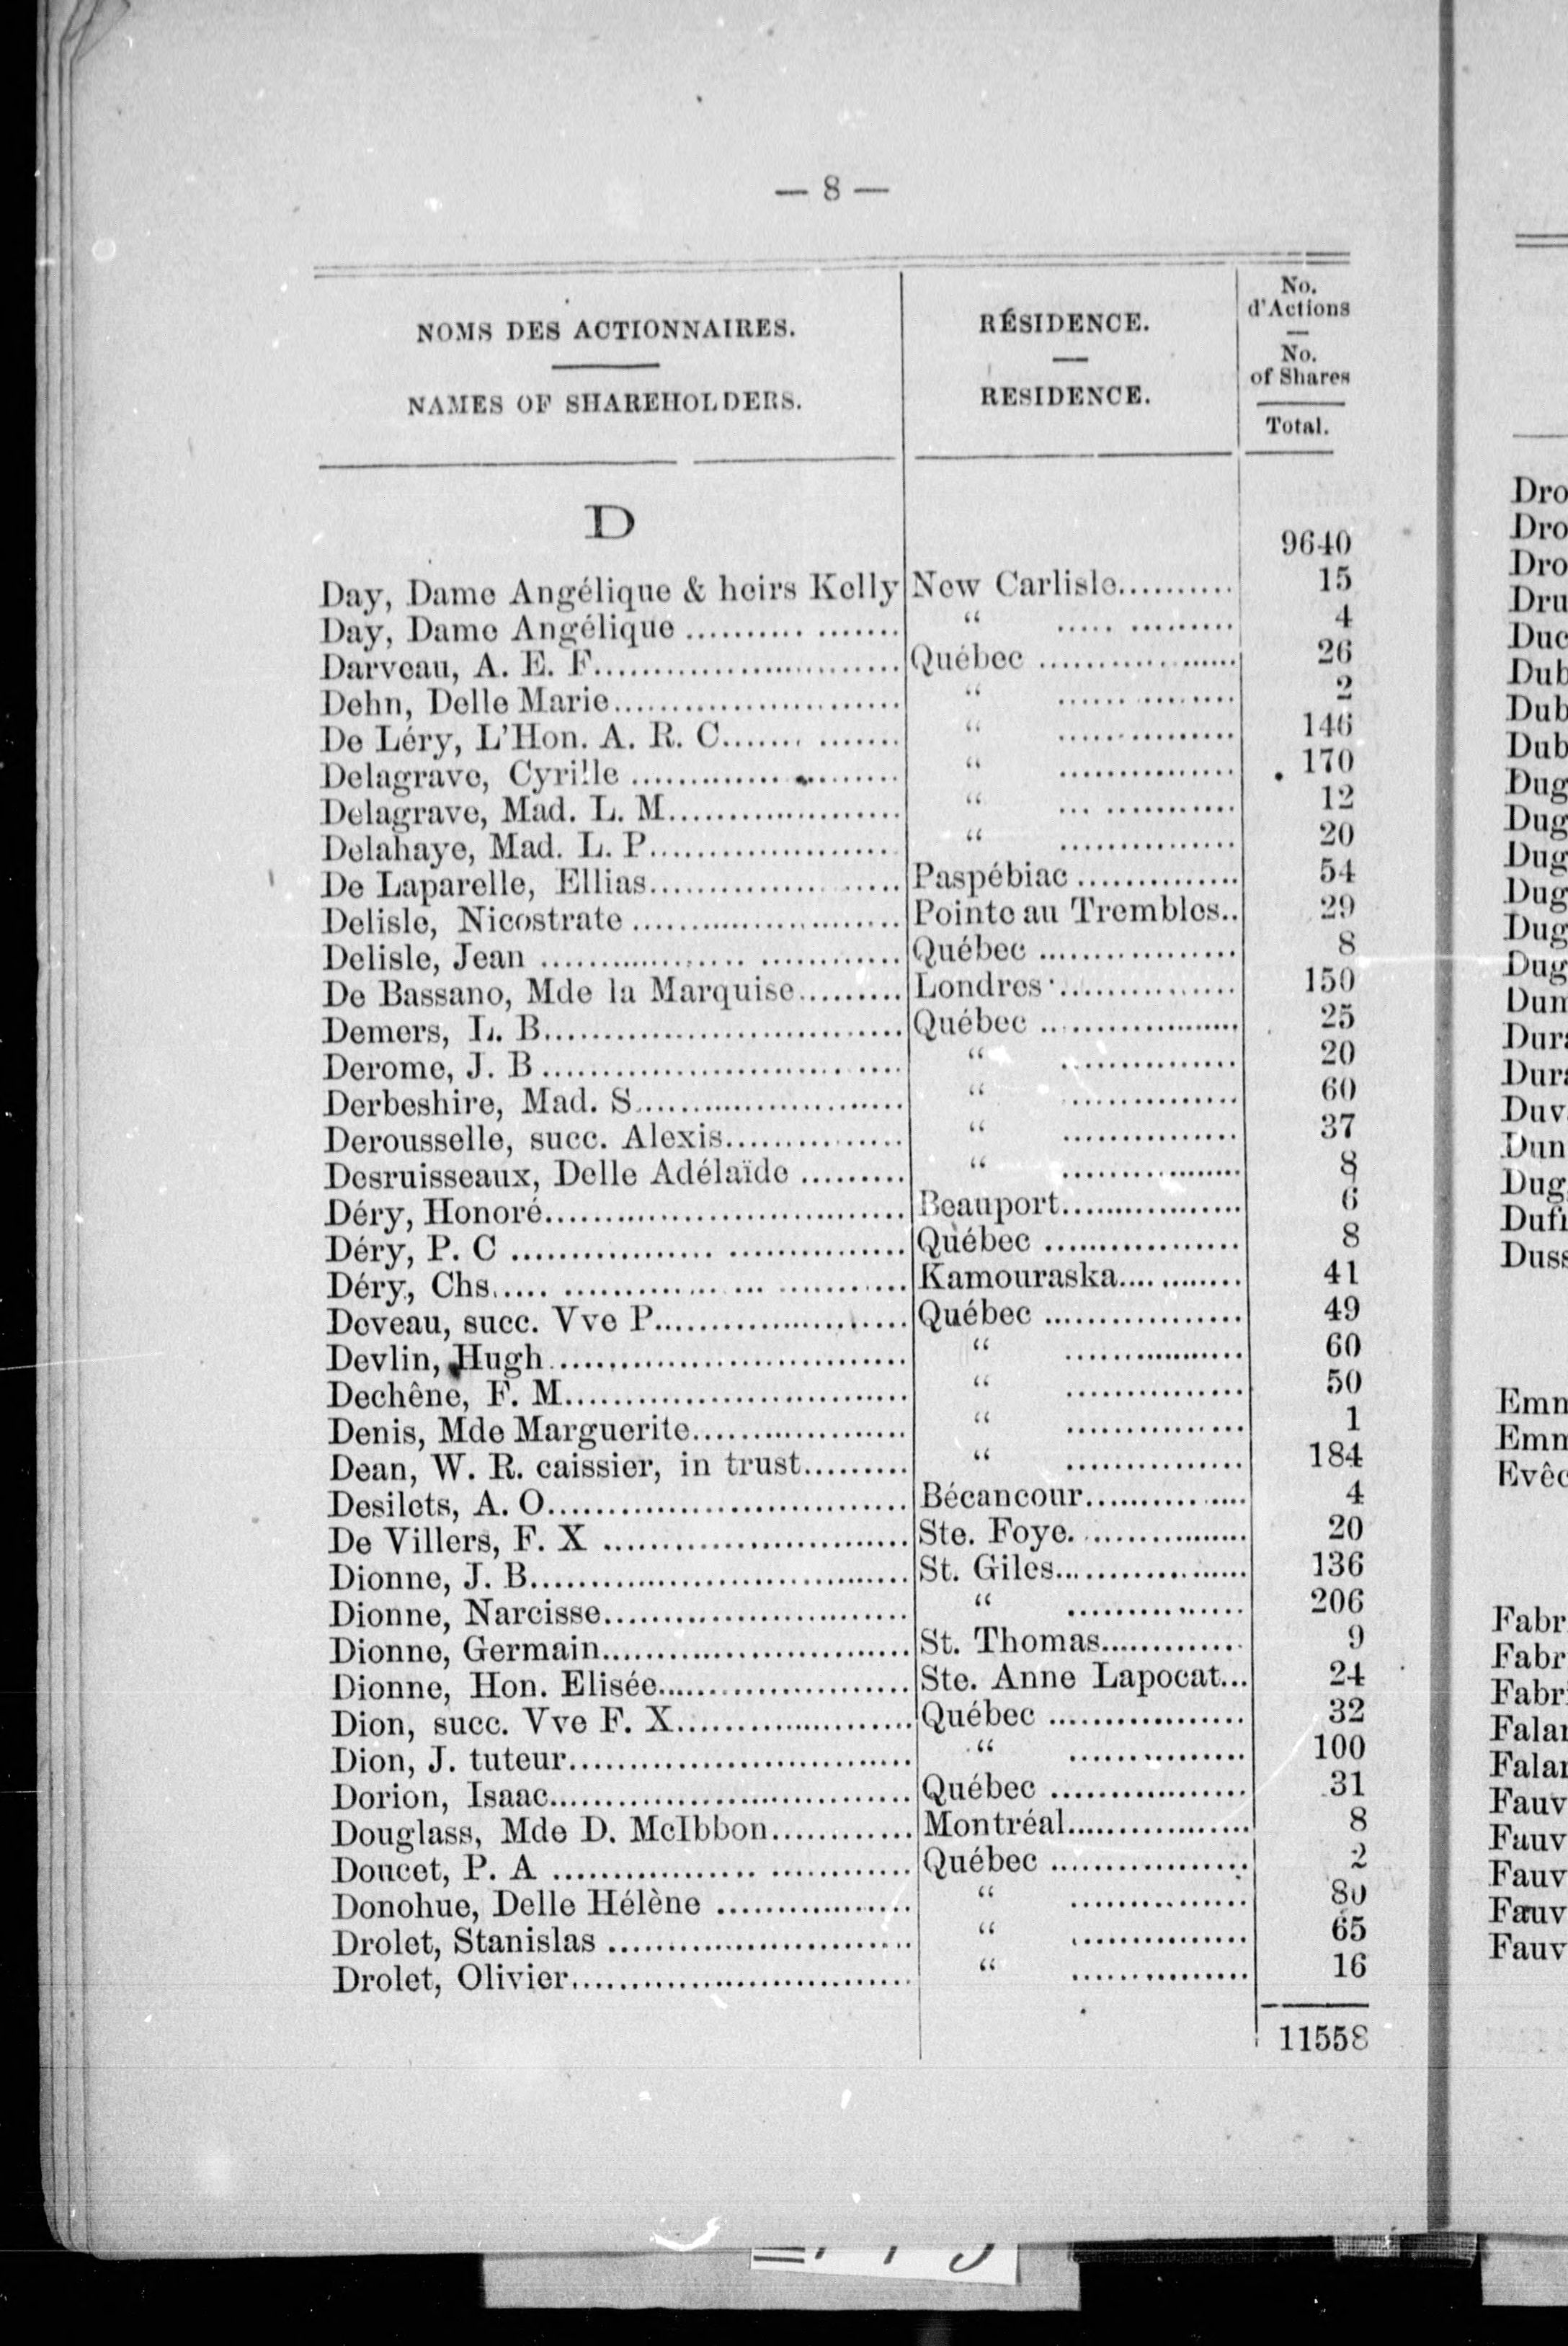 — 8 —
NOMS DES ACTIONNAIRES.
NAMES OF SHAREHOLDERS.
RÉSIDENCE.
RESIDENCE.
No.
d'Actions
No.
of Shares
Total.
D
9640
Day, Dame Angélique & heirs Kelly New Carlisle.......... 15
Day, Dame Angélique .................. “ .............. 4
Darveau, A. E. F............................ Québec .................. 26
Dehn, Delle Marie.......................... “ ................ 2
De Léry, L'Hon. A. R. C................ “ ................ 146
Delagrave, Cyrille ......................... “ ................ 170
Delagrave, Mad. L. M..................... “ ............... 12
Delahaye, Mad. L. P....................... “ ................ 20
De Laparelle, Ellias....................... Paspébiac ............... 54
Delisle, Nicostrate ........................ Pointe au Trembles.. 29
Delisle, Jean ................................. Québec .................. 8
De Bassano, Mde la Marquise......... Londres ................ 150
Demers, L. B................................ Québec .................. 25
Derome, J. B ................................ “ ................ 20
Derbeshire, Mad. S........................ “ ................ 60
Derousselle, succ. Alexis................ “ ................ 37
Desruisseaux, Delle Adélaïde ......... “ ................ 8
Déry, Honoré................................ Beauport................ 6
Déry, P. C ................................... Québec .................. 8
Déry, Chs..................................... Kamouraska........... 41
Deveau, succ. Vve P....................... Québec .................. 49
Devlin, Hugh................................ “ ................ 60
Dechêne, F. M............................... “ ................ 50
Denis, Mde Marguerite................... “ ................ 1
Dean, W. R. caissier, in trust......... “ ................ 184
Desilets, A. O................................ Bécancour.............. 4
De Villers, F. X ........................... Ste. Foye................ 20
Dionne, J. B.................................. St. Giles................. 136
Dionne, Narcisse........................... “ ................ 206
Dionne, Germain........................... St. Thomas............. 9
Dionne, Hon. Elisée....................... Ste. Anne Lapocat... 24
Dion, succ. Vve F. X...................... Québec .................. 32
Dion, J. tuteur............................... “ ................ 100
Dorion, Isaac................................ Québec .................. 31
Douglass, Mde D. McIbbon............ Montréal................ 8
Doucet, P. A ................................ Québec .................. 2
Donohue, Delle Hélène .................. “ ................ 80
Drolet, Stanislas ........................... “ ................ 65
Drolet, Olivier.............................. “ ................ 16
11558
Dro
Dro
Dro
Dru
Duc
Dub
Dub
Dub
Dug
Dug
Dug
Dug
Dug
Dug
Dun
Dura
Dura
Duv
Dun
Dug
Duf
Duss
Emn
Emn
Evêc
Fabr
Fabr
Fabr
Falar
Falar
Fauv
Fauv
Fauv
Fauv
Fauv